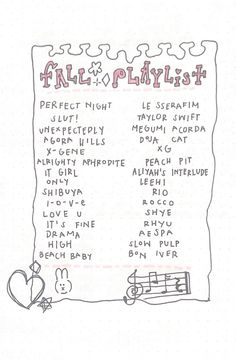 FALL PLAYLIST
PERFECT NIGHT LE SSERAFIM
SLUT! TAYLOR SWIFT
UNEXPECTEDLY MEGUMI ACORDA
AGORA HILLS DOJA CAT
X-GENE XG
ALRIGHTY APHRODITE PEACH PIT
IT GIRL ALIYAH'S INTERLUDE
ONLY LEEHI
SHIBUYA RIO
I-O-V-E ROCCO
LOVE U SHYE
IT'S FINE RHYU
DRAMA AESPA
HIGH SLOW PULP
BEACH BABY BON IVER